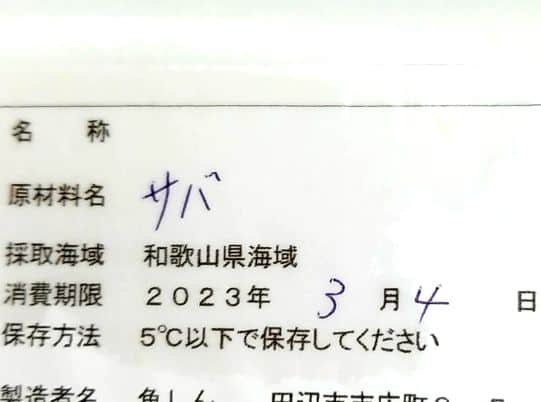 名 称
原材料名 サバ
採取海域 和歌山県海域
消費期限 2023年 3 月 4 日
保存方法 5℃以下で保存してください
製造者名 魚しん 田辺市